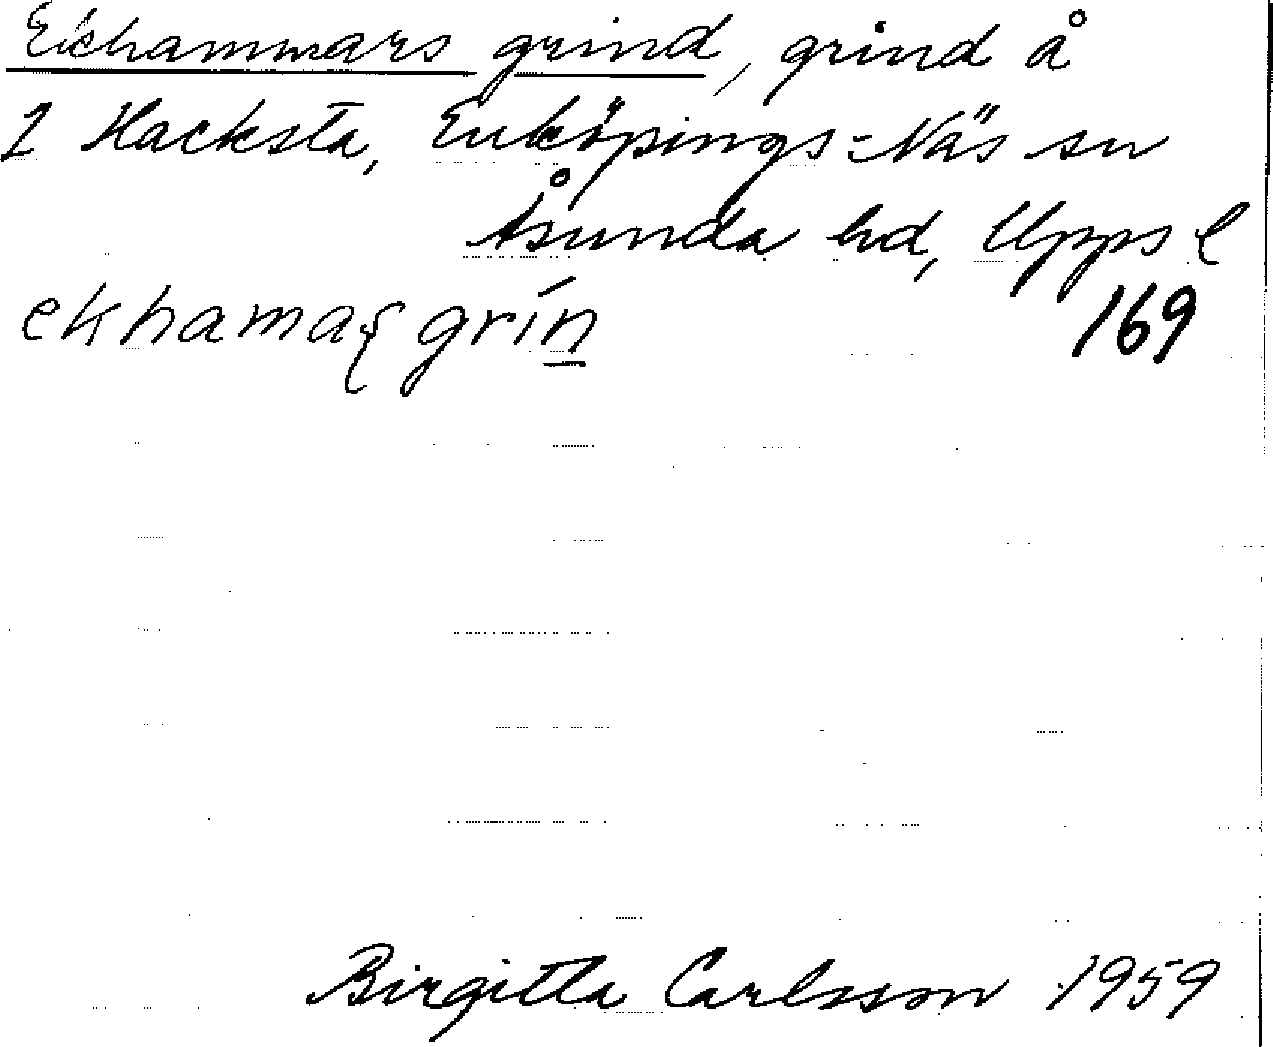 Ekhammars grind, grind å
2 Hacksta, Enköpings-Näs sn
Åsunda hd, Upps l
ekhamaʂ grín
169
Birgitta Carlsson 1959